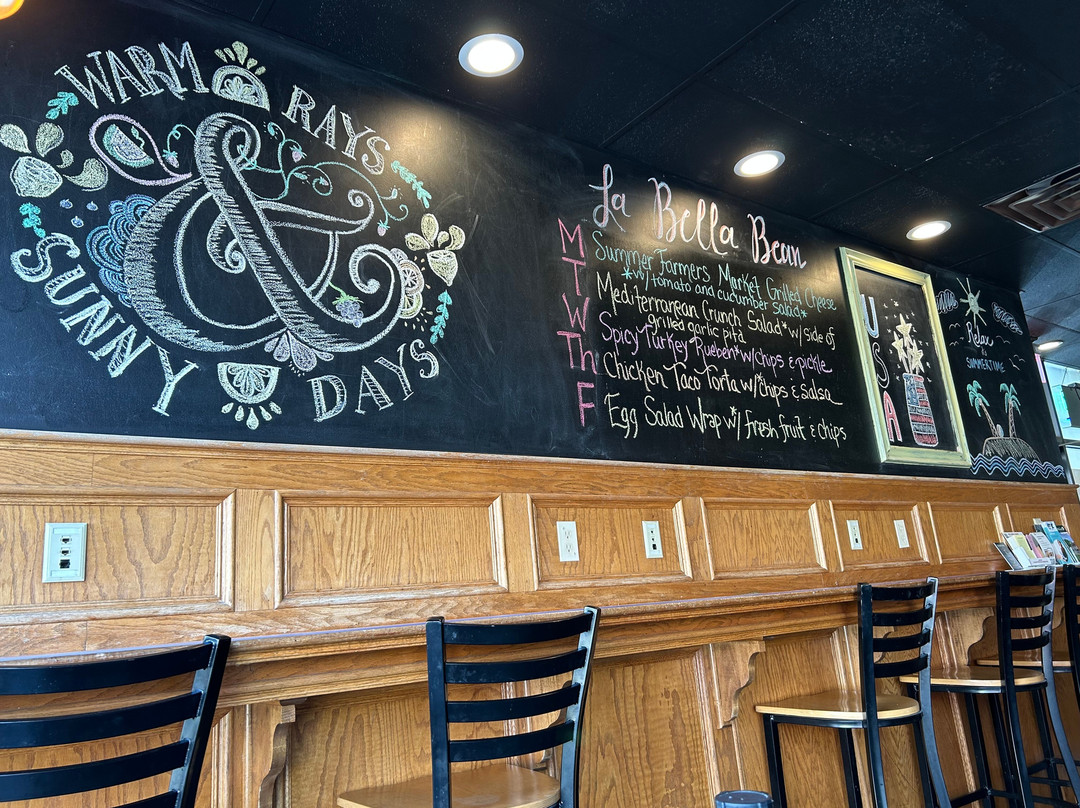 WARM & RAYS
SUNNY DAYS
La Bella Bean
M Summer Farmers Market Grilled Cheese
*w/ tomato and cucumber salad*
T Mediterranean Crunch Salad* w/ side of
grilled garlic pita
W Spicy Turkey Rueben* w/ chips & pickle
Th Chicken Taco Torta w/ chips & salsa
F Egg Salad Wrap w/ fresh fruit & chips
USA
Relax
it's
SUMMERTIME